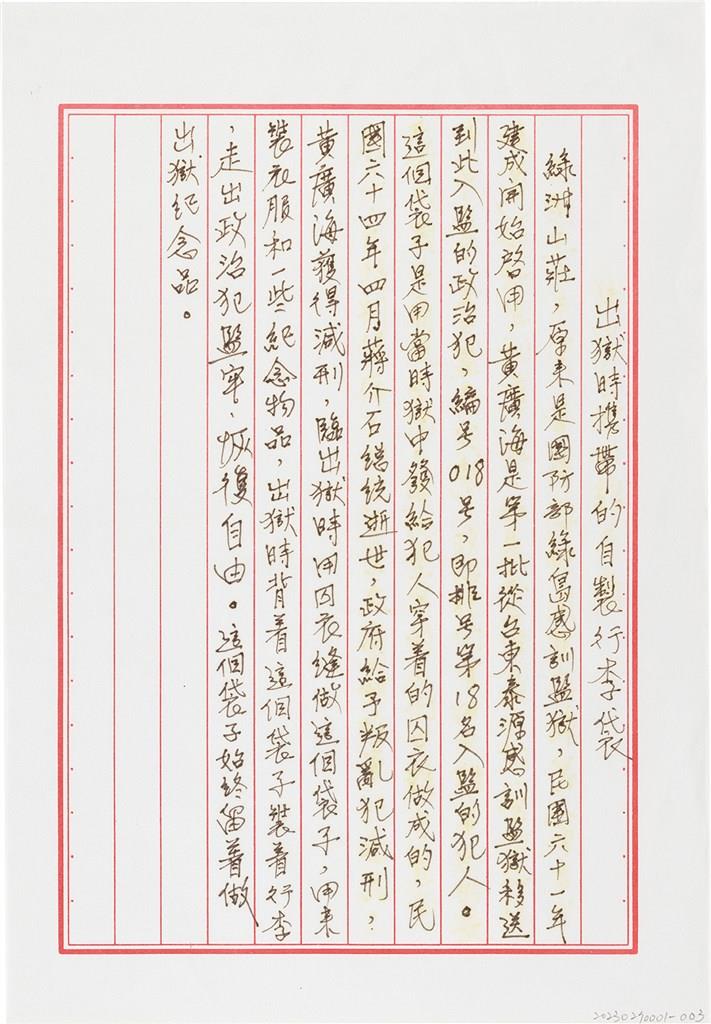 出獄時携帶的自製行李袋
綠洲山莊，原來是國防部綠島感訓監獄，民國六十一年
建成開始啓用，黃廣海是第一批從台東泰源感訓監獄移送
到此入監的政治犯，編号018号，即排号第18名入監的犯人。
這個袋子是用當時獄中發給犯人穿着的囚衣做成的，民
國六十四年四月蔣介石總統逝世，政府給予叛亂犯減刑，
黃廣海獲得減刑，臨出獄時用囚衣縫做這個袋子，用來
裝衣服和一些紀念物品，出獄時背着這個袋子裝着行李
，走出政治犯監牢，恢復自由。這個袋子始終留着做
出獄紀念品。
20230290001-003